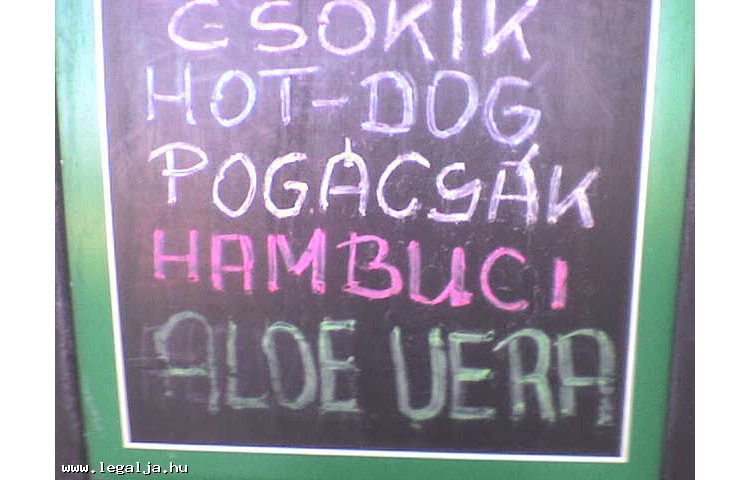 CSOKIK
HOT-DOG
POGÁCSÁK
HAMBUCI
ALOE VERA
www.legalja.hu